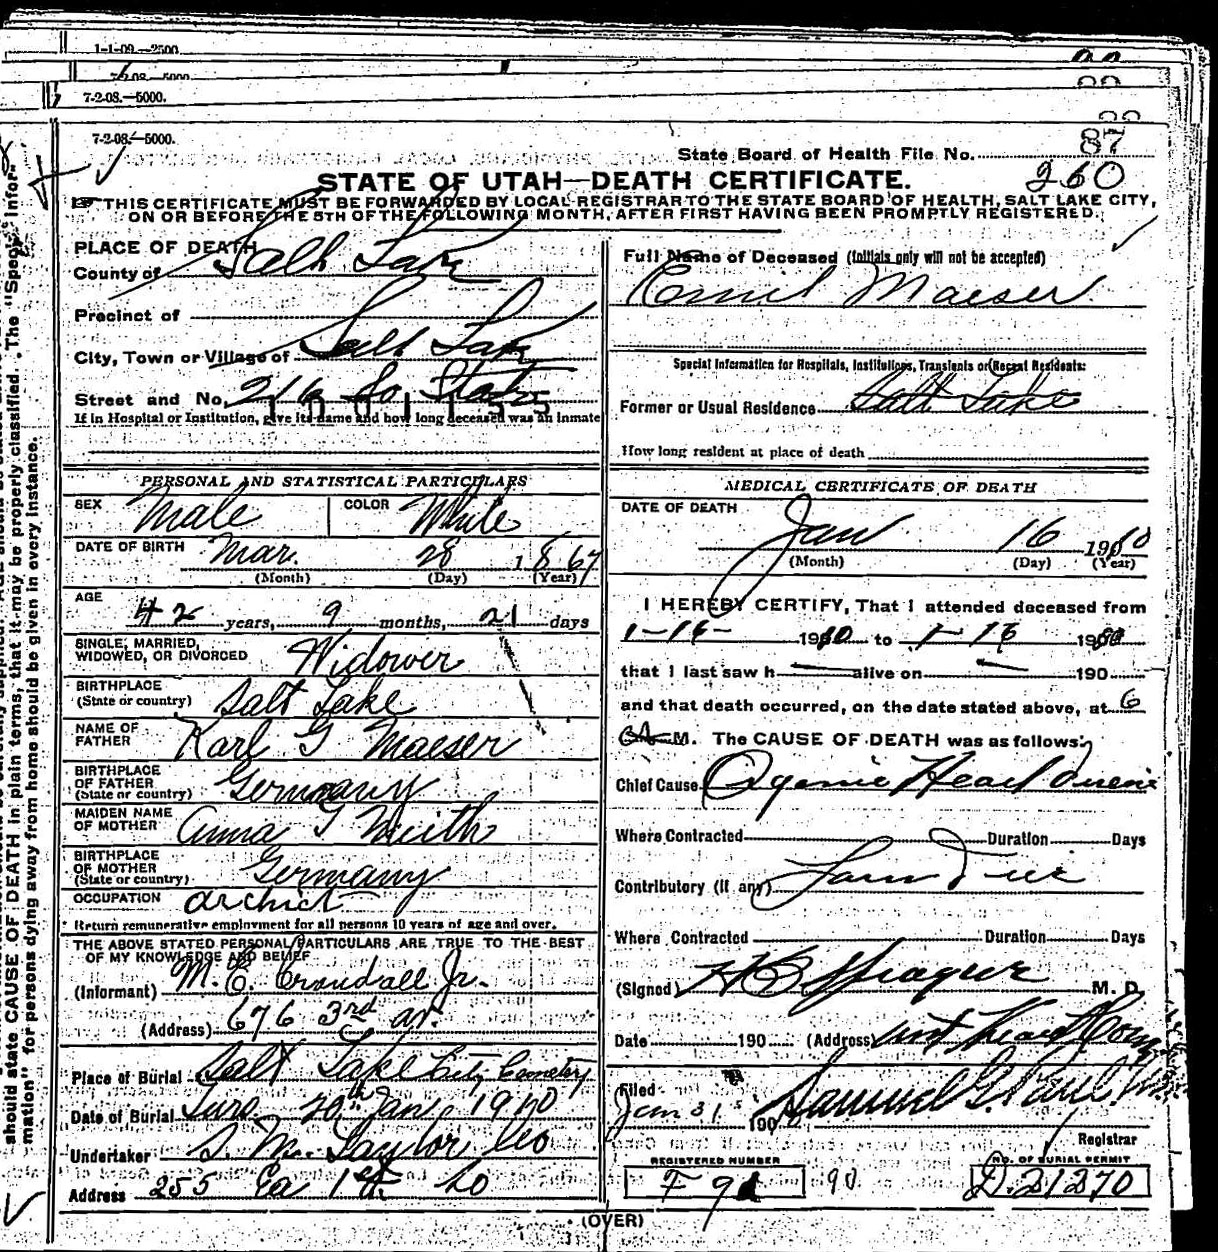 1-1-09.—2500.
7-2-08.—5000.
7-2-08.—5000.
7-2-08.—5000.
87
State Board of Health File No.
260
STATE OF UTAH—DEATH CERTIFICATE.
THIS CERTIFICATE MUST BE FORWARDED BY LOCAL REGISTRAR TO THE STATE BOARD OF HEALTH, SALT LAKE CITY,
ON OR BEFORE THE 5TH OF THE FOLLOWING MONTH, AFTER FIRST HAVING BEEN PROMPTLY REGISTERED.
PLACE OF DEATH
County of Salt Lake
Precinct of
City, Town or Village of Salt Lake
Street and No. 216 So State
If in Hospital or Institution, give its name and how long deceased was an inmate
Full Name of Deceased (Initials only will not be accepted)
Emil Maeser
Special Information for Hospitals, Institutions, Transients or Recent Residents:
Former or Usual Residence Salt Lake
How long resident at place of death
PERSONAL AND STATISTICAL PARTICULARS
SEX Male COLOR White
DATE OF BIRTH Mar. 28 1867
(Month) (Day) (Year)
AGE
42 years, 9 months, 21 days
SINGLE, MARRIED,
WIDOWED, OR DIVORCED Widower
BIRTHPLACE
(State or country) Salt Lake
NAME OF
FATHER Karl G Maeser
BIRTHPLACE
OF FATHER
(State or country) Germany
MAIDEN NAME
OF MOTHER Anna
BIRTHPLACE
OF MOTHER
(State or country) Germany
OCCUPATION archict
Return remunerative employment for all persons 10 years of age and over.
THE ABOVE STATED PERSONAL PARTICULARS ARE TRUE TO THE BEST
OF MY KNOWLEDGE AND BELIEF
(Informant) M. E. Crandall Jr.
(Address) 676 3rd av.
Place of Burial Salt Lake City Cemetery
Date of Burial 20th Jan 1910
Undertaker S. M. Taylor Co
Address 255 Ea 1st So
MEDICAL CERTIFICATE OF DEATH
DATE OF DEATH
Jan 16 1910
(Month) (Day) (Year)
I HEREBY CERTIFY, That I attended deceased from
1-16- 1910 to 1-16 1910
that I last saw h alive on 190
and that death occurred, on the date stated above, at 6
M. The CAUSE OF DEATH was as follows:
Chief Cause Organic Heart
Where Contracted Duration Days
Contributory (if any)
Where Contracted Duration Days
(Signed) H B Sprague M. D.
Date 190 (Address)
Filed
Jan 31 190 Samuel G. Paul
Registrar
REGISTERED NUMBER
F 91
90
NO. OF BURIAL PERMIT
D. 21270
(OVER)
should state CAUSE OF DEATH in plain terms, that it may be properly classified. The "Special Infor-
mation" for persons dying away from home should be given in every instance.